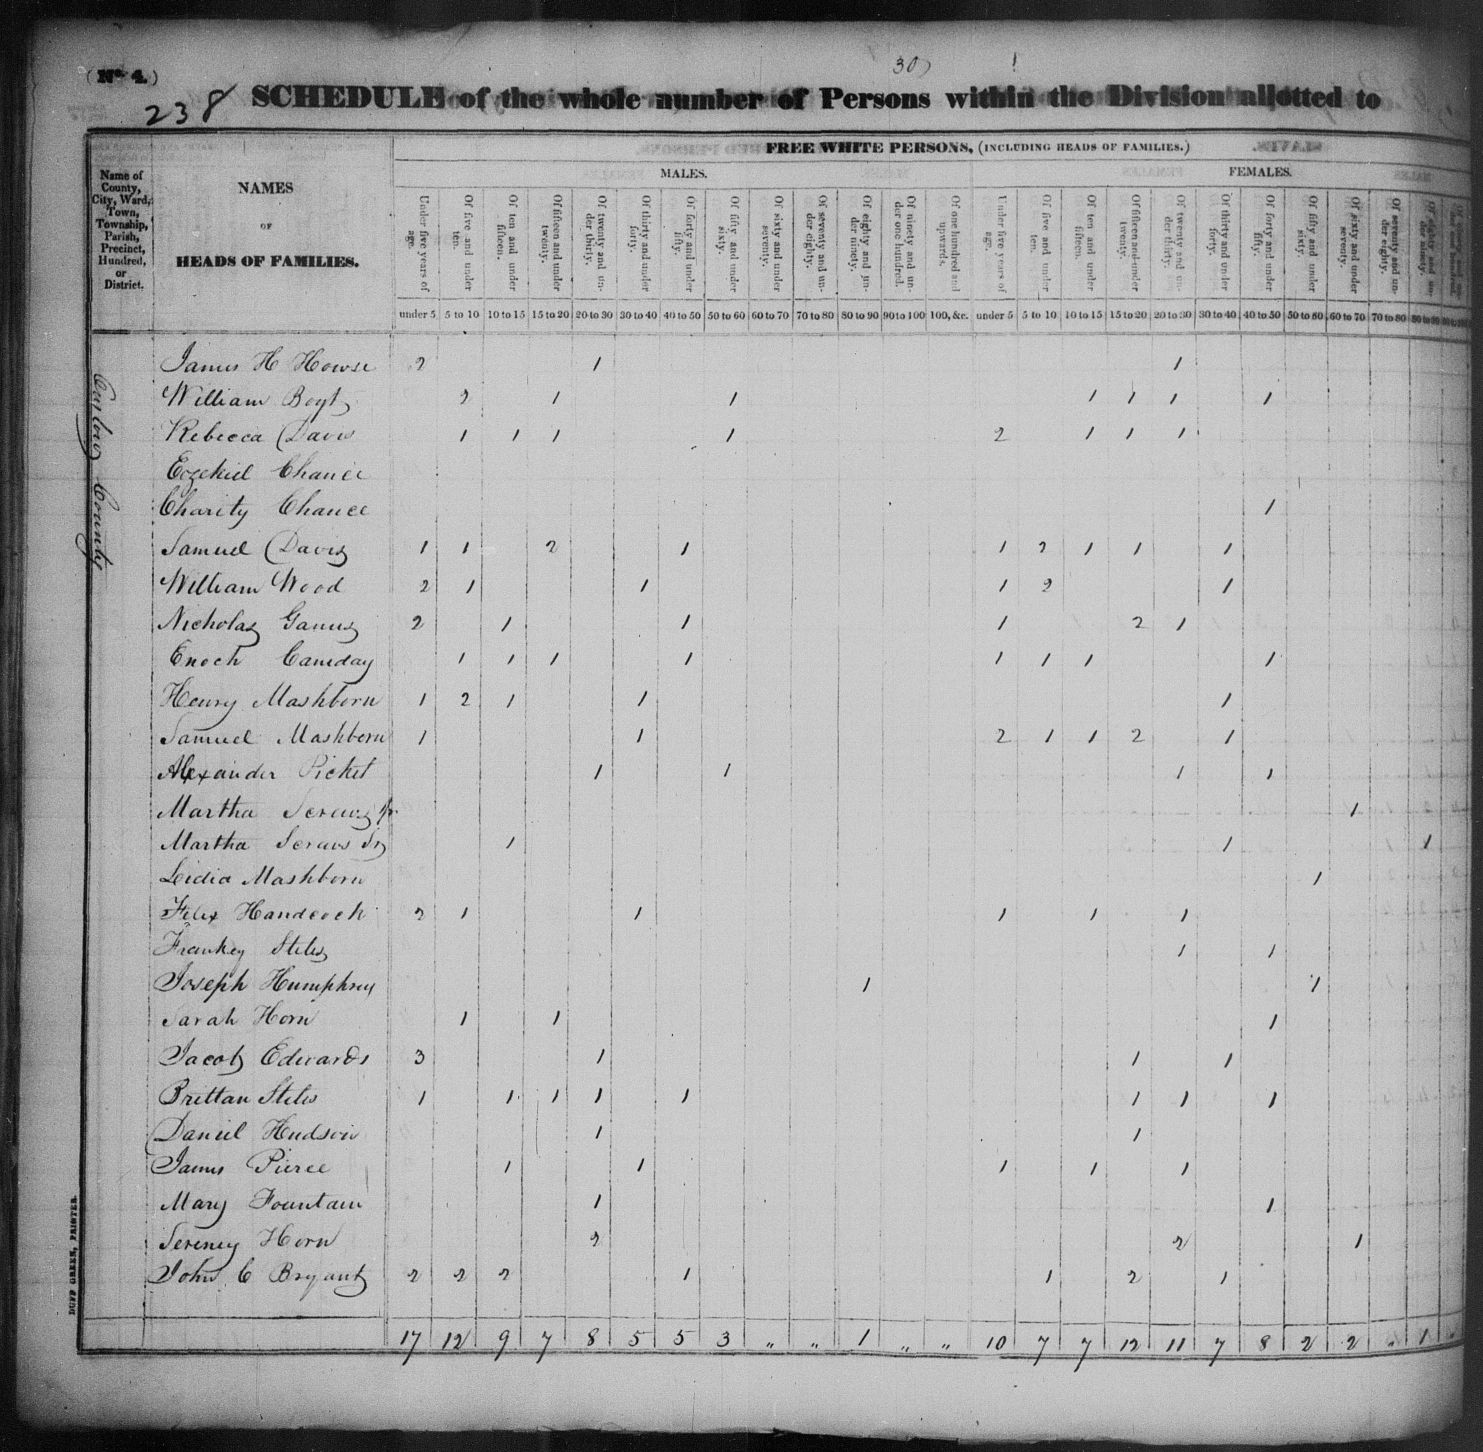 (No. 4.)
30
238
SCHEDULE of the whole number of Persons within the Division allotted to
FREE WHITE PERSONS, (INCLUDING HEADS OF FAMILIES.)
MALES. FEMALES.
Name of County, City, Ward, Town, Township, Parish, Precinct, Hundred, or District.
NAMES
OF
HEADS OF FAMILIES.
Under five years of age.
Of five and under ten.
Of ten and under fifteen.
Of fifteen and under twenty.
Of twenty and under thirty.
Of thirty and under forty.
Of forty and under fifty.
Of fifty and under sixty.
Of sixty and under seventy.
Of seventy and under eighty.
Of eighty and under ninety.
Of ninety and under one hundred.
Of one hundred and upwards.
Under five years of age.
Of five and under ten.
Of ten and under fifteen.
Of fifteen and under twenty.
Of twenty and under thirty.
Of thirty and under forty.
Of forty and under fifty.
Of fifty and under sixty.
Of sixty and under seventy.
Of seventy and under eighty.
Of eighty and under ninety.
under 5 5 to 10 10 to 15 15 to 20 20 to 30 30 to 40 40 to 50 50 to 60 60 to 70 70 to 80 80 to 90 90 to 100 100, &c. under 5 5 to 10 10 to 15 15 to 20 20 to 30 30 to 40 40 to 50 50 to 60 60 to 70 70 to 80 80 to 90
County
James H Howse 2 1 1
William Boyt 2 1 1 1 1 1 1
Rebecca Davis 1 1 1 1 2 1 1 1
Ezekiel Chance
Charity Chance 1
Samuel Davis 1 1 2 1 1 2 1 1 1
William Wood 2 1 1 1 2 1
Nicholas Ganus 2 1 1 1 2 1
Enoch Canaday 1 1 1 1 1 1 1 1
Henry Mashborn 1 2 1 1 1
Samuel Mashborn 1 1 2 1 1 2 1
Alexander Picket 1 1 1 1
Martha 1
Martha Sr 1 1 1
Leidia Mashborn 1
Felix Handcock 2 1 1 1 1 1
Frankey Stiles 1 1
Joseph Humphrey 1 1
Sarah Horn 1 1 1
Jacob Edwards 3 1 1 1
Brittan Stiles 1 1 1 1 1 1 1 1
Daniel Hudson 1 1
James Pierce 1 1 1 1 1
Mary Fountain 1 1
Sereney Horn 2 2 1
John C Bryant 2 2 2 1 1 2 1
17 12 9 7 8 5 5 3 " " 1 " " 10 7 7 12 11 7 8 2 2 " 1
DUFF GREEN, PRINTER.